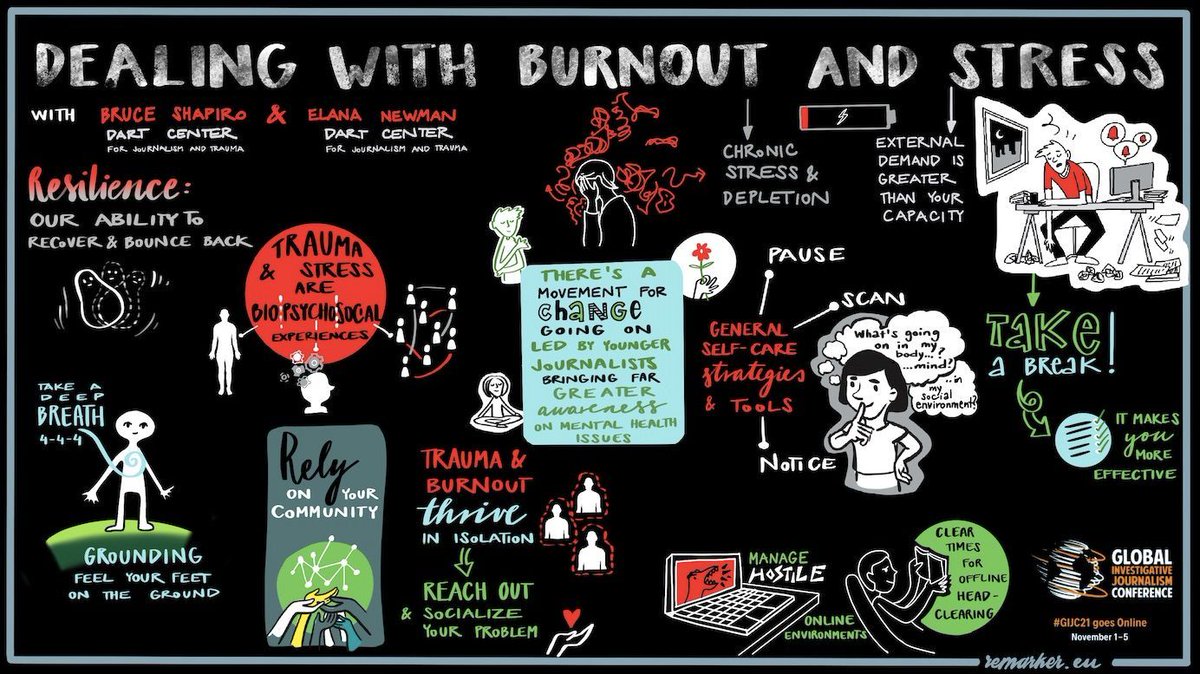 DEALING WITH BURNOUT AND STRESS
WITH BRUCE SHAPIRO & ELANA NEWMAN
DART CENTER
FOR JOURNALISM AND TRAUMA
DART CENTER
FOR JOURNALISM AND TRAUMA
Resilience:
OUR ABILITY TO
RECOVER & BOUNCE BACK
TRAUMA
& STRESS
ARE
BIOPSYCHOSOCAL
EXPERIENCES
TAKE A
DEEP
BREATH
4-4-4
GROUNDING
FEEL YOUR FEET
ON THE GROUND
Rely
ON YOUR
COMMUNITY
TRAUMA &
BURNOUT
thrive
IN ISOLATION
REACH OUT
& SOCIALIZE
YOUR PROBLEM
THERE'S A
MOVEMENT FOR
CHANGE
GOING ON
LED BY YOUNGER
JOURNALISTS
BRINGING FAR
GREATER
awareness
ON MENTAL HEALTH
ISSUES
CHRONIC
STRESS &
DEPLETION
EXTERNAL
DEMAND IS
GREATER
THAN YOUR
CAPACITY
PAUSE
SCAN
GENERAL
SELF-CARE
strategies
& TOOLS
NOTICE
What's going
on in my
body...?
...mind?
...in
my
social
environment?
TAKE
a BREAK!
IT MAKES
you
MORE
EFFECTIVE
MANAGE
HOSTILE
ONLINE
ENVIRONMENTS
CLEAR
TIMES
FOR
OFFLINE
HEAD-
CLEARING
GLOBAL
INVESTIGATIVE
JOURNALISM
CONFERENCE
#GIJC21 goes Online
November 1-5
remarker.eu